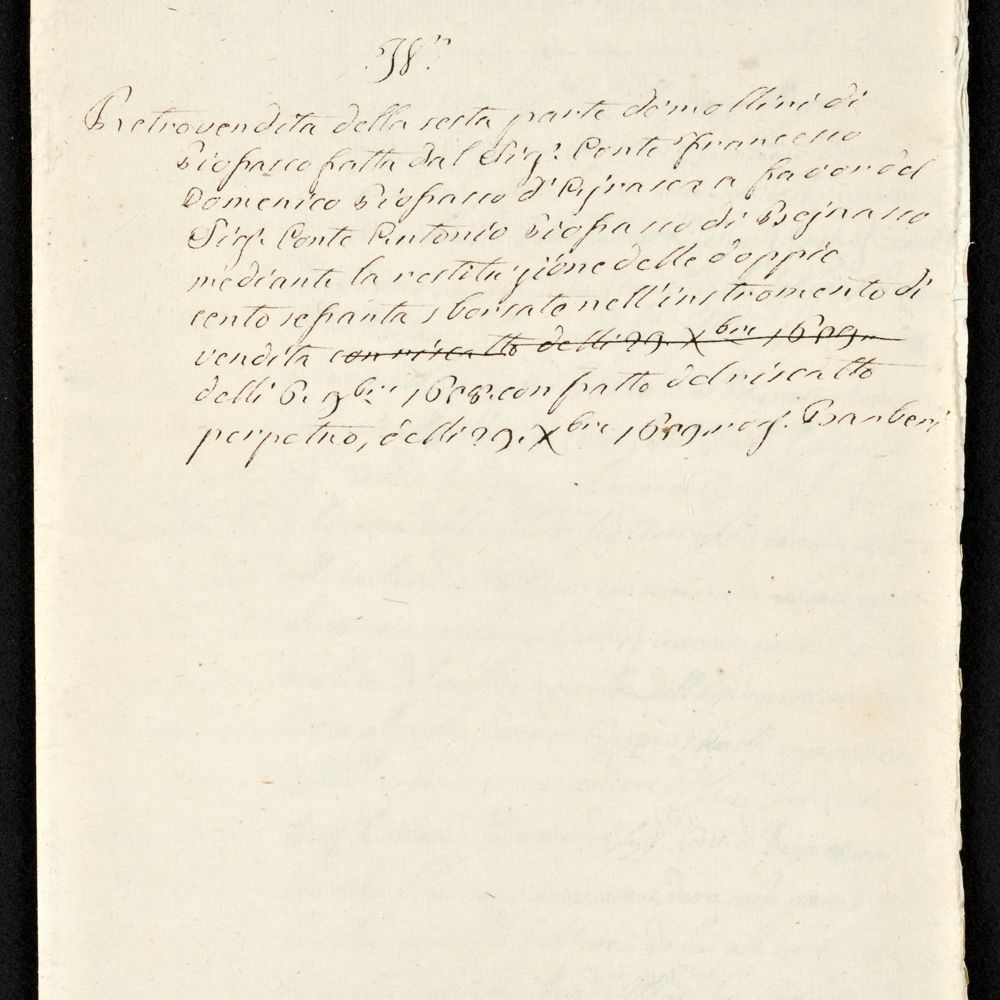 Retrovendita della sesta parte de mollini di
Piofasco fatta dal Sig.r Conte Francesco
Domenico Piofasco d'Ajrasca a favor del
Sig.r Conte Antonio Piofasco di Bejnasco
mediante la restituzione delle doppie
cento settanta sborsate nell'instromento di
vendita con riscatto delli 29. Xbre 1689.
delli 6. 9bre 1688. con patto del riscatto
perpetuo, delli 29. Xbre 1689. rog. Barberi